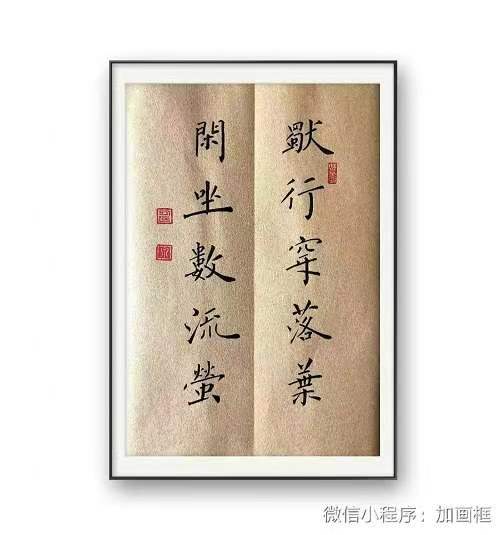 獨行穿落葉
閑坐數流螢
微信小程序：加画框